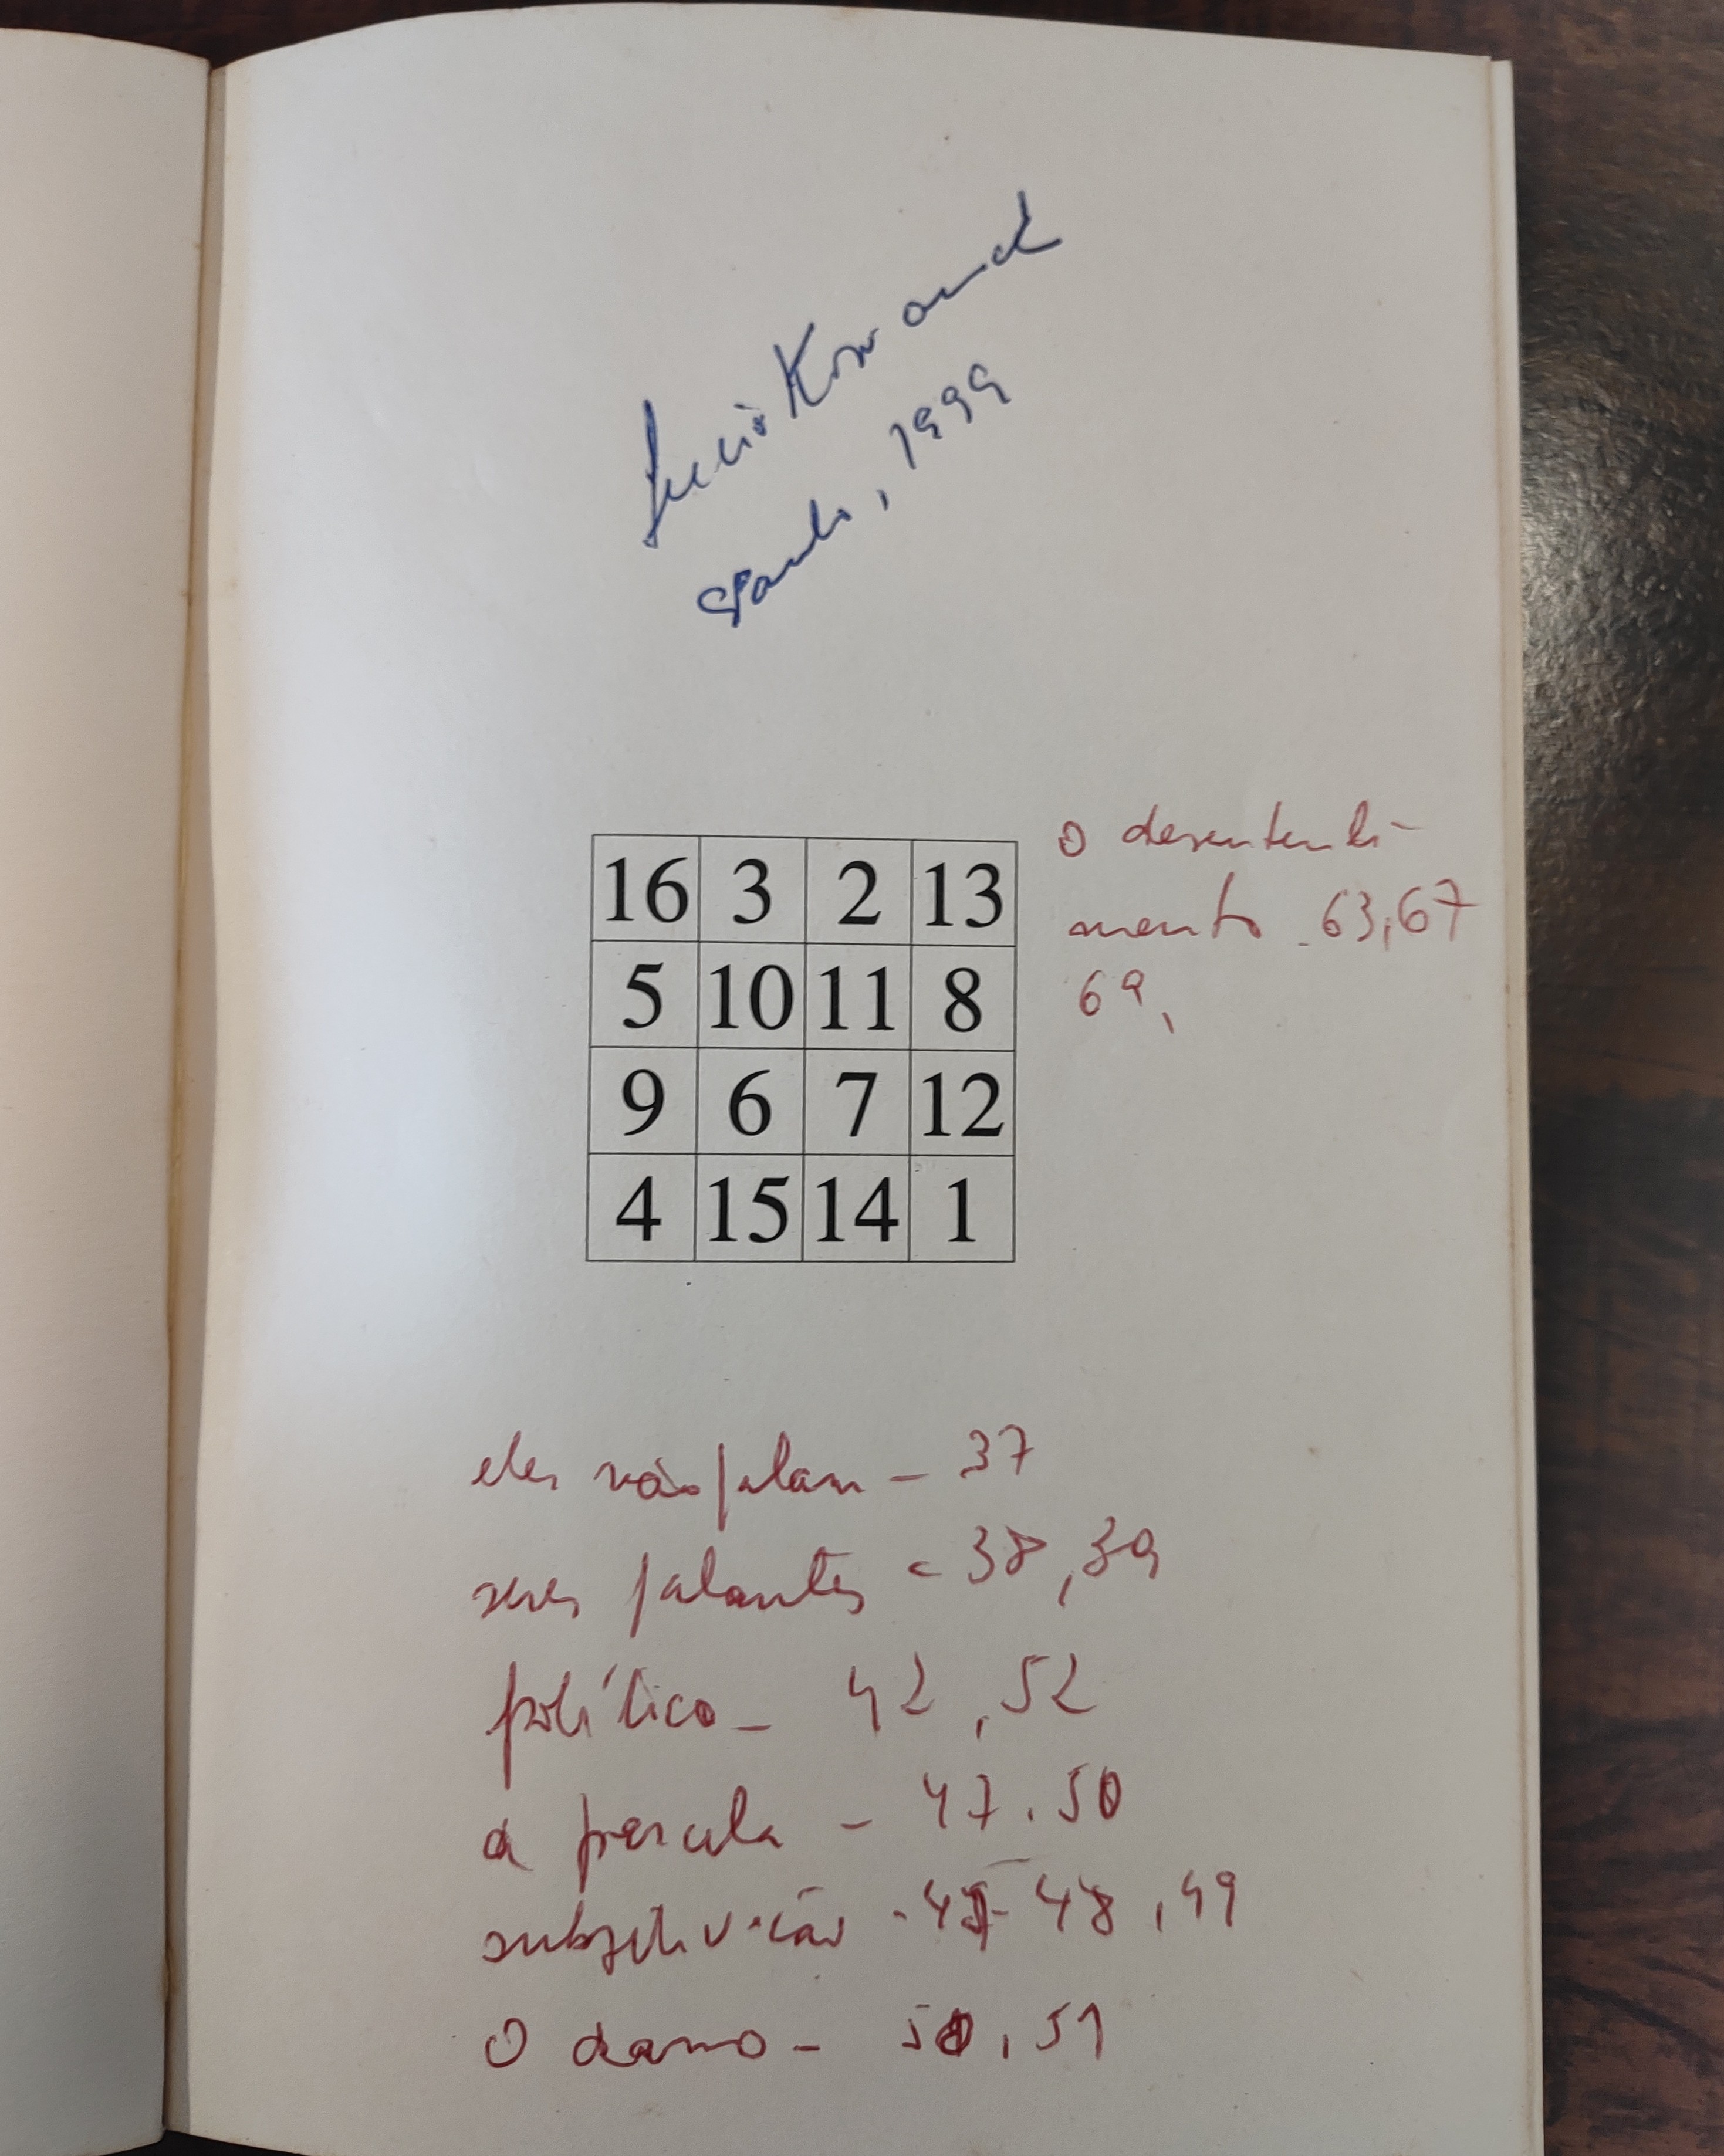 Lucio Kowarick
SPaulo, 1999
16 3 2 13
5 10 11 8
9 6 7 12
4 15 14 1
o desentendi-
mento - 63, 67
69,
eles não falam - 37
seres falantes - 38, 39
político - 42, 52
a parcela - 47. 50
subjetivação - 48, 49
o dano - 50, 51